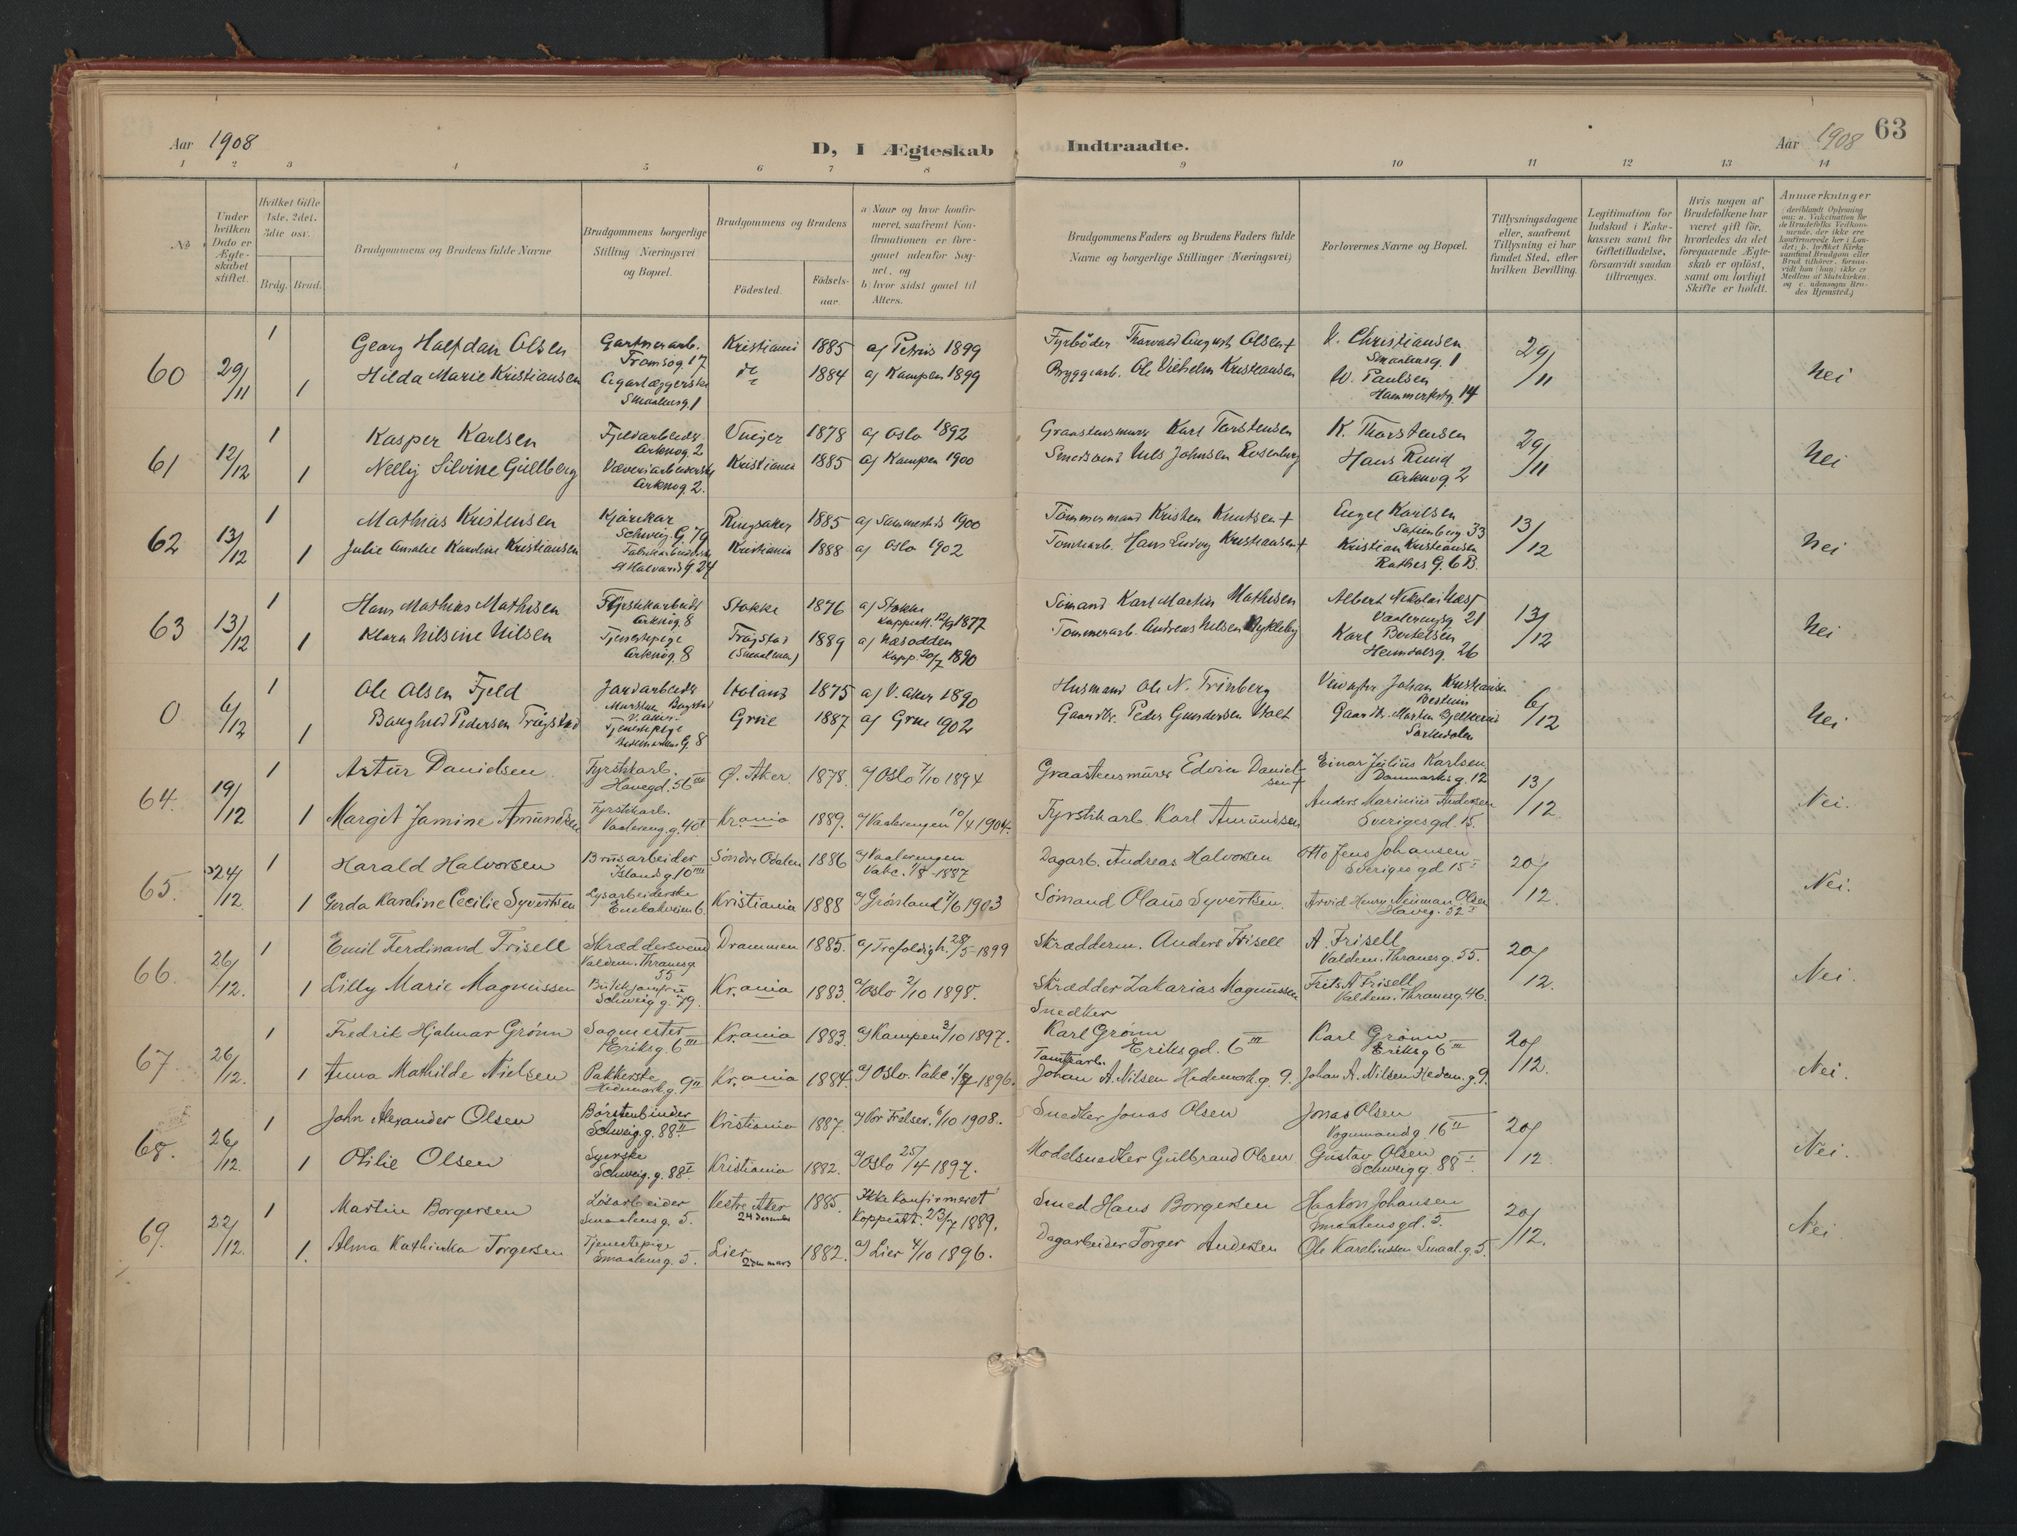 63
Aar 1908
D, I Ægteskab Indtraadte.
Aar 1908
1 2 3 4 5 6 7 8 9 10 11 12 13 14
No
Under hvilken Dato er Ægteskabet stiftet.
Hvilket Gifte 1ste, 2det, 3die osv.
Brdg. Brud.
Brudgommens og Brudens fulde Navne
Brudgommens borgerlige Stilling (Næringsvei og Bopæl.
Brudgommens og Brudens
Födested.
Födselsaar.
a) Naar og hvor konfirmeret, saafremt Konfirmationen er foregaaet udenfor Sognet, og
b) hvor sidst gaaet til Alters.
Brudgommens Faders og Brudens Faders fulde Navne og borgerlige Stillinger (Næringsvei)
Forlovernes Navne og Bopæl.
Tillysningsdagene eller, saafremt Tillysning ei har fundet Sted, efter hvilken Bevilling.
Legitimation for Indskud i Enkekassen samt for Giftetilladelse, forsaavidt saadan tiltrænges.
Hvis nogen af Brudefolkene har været gift før, hvorledes da det foregaaende Ægteskab er opløst, samt om lovligt Skifte er holdt.
Anmærkninger
60 29/11 1 Georg Halfdan Olsen Gartnerarb. Kristiania 1885 a) Petrus 1899 Fyrbøder Thorvald August Olsen + K. Christiansen 29/11 Nei
Tromsøg 17 Smaalensg. 1
1 Hilda Marie Kristiansen Cigarlæggerske 1884 a) Kampen 1899 Bryggearb. Ole Vilhelm Kristiansen W. Paulsen
Smaalensg. 1 Hammerfestg. 14
61 12/12 1 Kasper Karlsen Fjeldarbeider 1878 a) Oslo 1892 Graastensmurer Karl Torstensen K. Thorstensen 29/11 Nei
Arknog. 2
1 Nelly Silvine Gullberg Væveriarbeiderske Kristiania 1885 a) Kampen 1900 Smedsvend Nils Johnsen Hans Ruud
Arknog 2. Arknog 2
62 13/12 1 Mathias Kristensen Kjørekar Ringsaker 1885 a) 1900 Tømmermand Kristen Knutsen + Engel Karlsen 13/12 Nei
Schweig. G. 79 33
1 Julie Amalie Karoline Kristiansen Fabrikarbeiderske Kristiania 1888 a) Oslo 1902 Tomtearb. Hans Ludvig Kristiansen + Kristian Kristiansen
St Halvards G. 24 G. 6 B.
63 13/12 1 Hans Mathias Mathisen Fyrstikkarbeid Stokke 1876 a) Stokke Sømand Karl Martin Mathisen Albert Nikolai 13/12 Nei
Arknog. 8 Koppeatt. 12/9 1877 Vaalerengg 21
1 Klara Nilsine Nilsen Tjenestepige Trøgstad 1889 a) Næsodden Tømmerarb. Andreas Nilsen Karl Bertelsen
Arknog. 8 (Smaalenen) Kopp. 20/7 1890 Heimdalsg. 26
0 6/12 1 Ole Olsen Fjeld Jordarbeider 1875 a) V. Aker 1890 Husmand Ole N. Johan Kristiansen 6/12 Nei
V. Aker. Bestum
1 Pedersen Trøgstad Tjenestepige Grue 1887 a) Grue 1902 Gaardbr. Peder Gundersen Gaardbr. Martin
G. 8 Sørkedalen
64. 19/12 1 Artur Danielsen Fyrstikkarb. Ø. Aker 1878. a) Oslo 7/10 1894 Graastensmurer Edvin Danielsen + Einar Julius Karlsen 13/12 Nei.
Havegd. 56 III Danmarksg. 12
1 Margit Jamine Amundsen Fyrstikkarb. Kr.ania 1889. a) Vaalerengen 10/4 1904. Fyrstikkarb. Karl Amundsen Anders Marinius Andersen
Vaalereng. g. 40 I Sverigesgd. 15.
65. 24/12. 1 Harald Halvorsen Brusarbeider Søndre Odalen 1886 a) Vaalerengen Dagarb. Andreas Halvorsen Otto Jens Johansen 20/12. Nei.
Islandsg. 10 III Vakc. 1/8 1887 Sverigesgd 15 I
1 Gerda Karoline Cecilie Syvertsen Lysarbeiderske Kristiania 1888 a) Grønland 7/6 1903 Sømand Olaus Syvertsen Arvid Henry Neuman Olsen
Enebakveien 6. Haveg. 52 I
66. 26/12. 1 Emil Ferdinand Frisell Skræddersvend Drammen 1885. a) Trefoldigh. 28/5 1899 Skrædderm. Anders Frisell A. Frisell 20/12. Nei.
Valdem. Thranesg 55 Valdem. Thranesg. 55.
1 Lilly Marie Magnussen Butikjomfru Kr.ania 1883. a) Oslo 2/10 1898. Skrædder Zakarias Magnussen Frits A Frisell
Schweig. g. 79. Valdem. Thranesg. 46.
67. 26/12. 1 Fredrik Hjalmar Grønn Sagmester Kr.ania 1883. a) Kampen 3/10 1897. Snedker Karl Grønn Karl Grønn 20/12. Nei.
Eriksg. 6 III Eriksgd. 6 III Eriksg 6 III
1 Anna Mathilde Nielsen Pakkerske Kr.ania 1884. a) Oslo. Vakc. 1896. Tomtearb. Johan A. Nilsen Hedemark. g. 9. Johan A. Nilsen Hedem. g. 9.
Hedemark. g. 9 II
68. 26/12. 1 John Alexander Olsen Børstenbinder Kristiania 1887. a) Vor Frelser. 6/10 1908. Snedker Jonas Olsen Jonas Olsen 20/12. Nei.
Schweig. g. 88 II Vognmandg. 16 II
1 Otilie Olsen Syerske Kristiania 1882. a) Oslo 25/4 1897. Modelsnedker Gulbrand Olsen Gustav Olsen
Schweig. g. 88 I Schweigg. 88 I
69. 22/12. 1 Martin Borgersen Løsarbeider Vestre Aker 1885. Ikke konfirmeret Smed Hans Borgersen Haakon Johansen 20/12. Nei.
Smaalensg. 5. 24 december Koppeatt. 23/7 1889. Smaalensgd. 5.
1. Alma Kathinka Torgersen Tjenestepige Lier 1882. a) Lier 4/10 1896. Dagarbeider Torger Andersen Ole Karelinssen Smaal. g. 5.
Smaalensg. 5. 2den mars